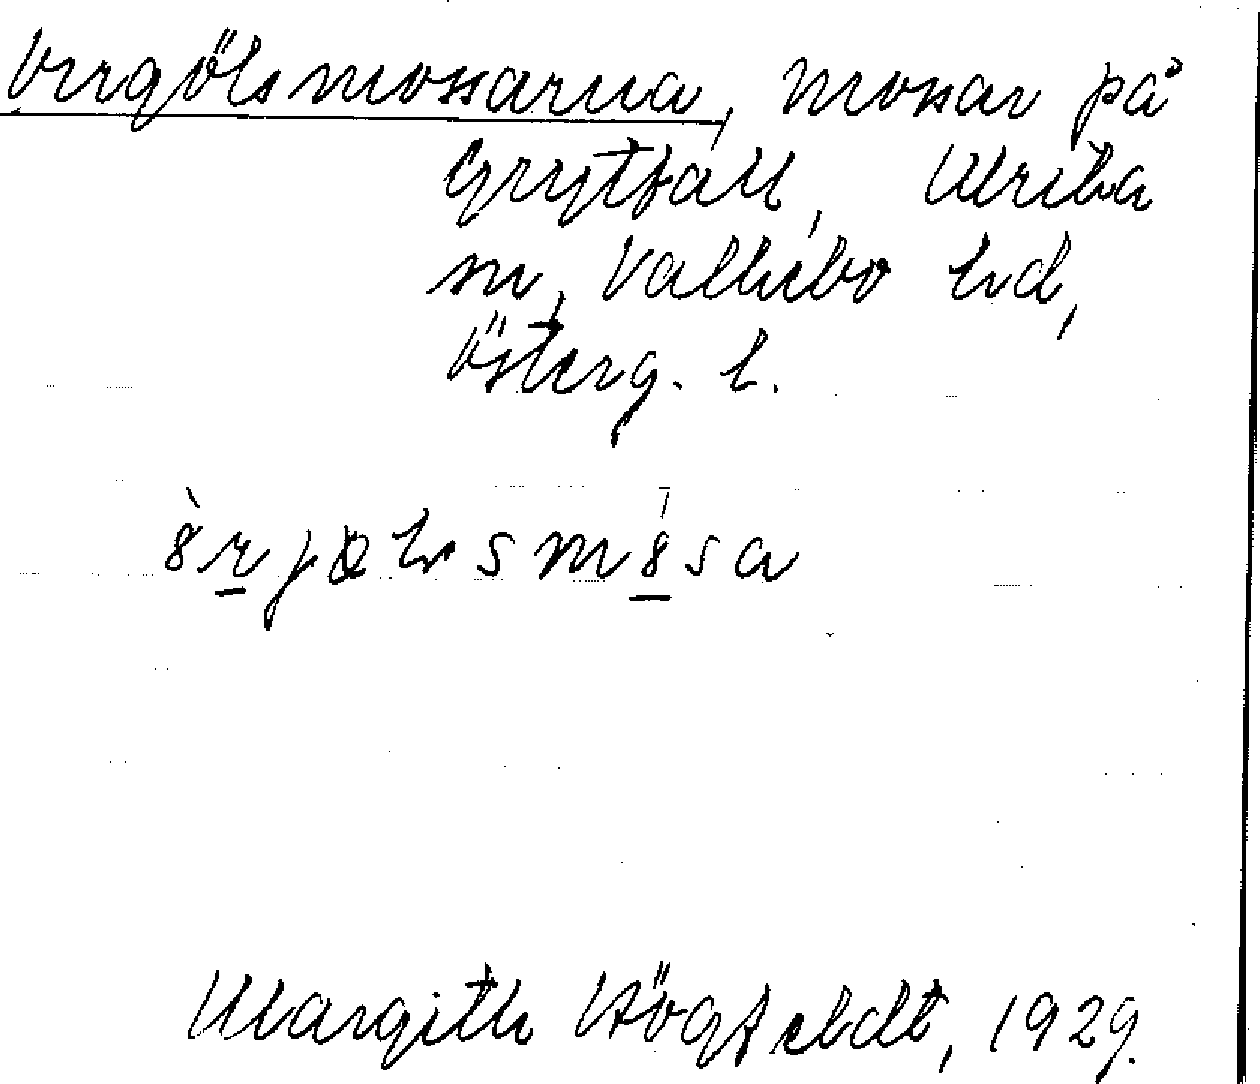 Orrgölsmossarna, mossar på
Grytfall, Ulrika
sn, Valkebo hd,
Österg. l.
Margith Högfeldt, 1929.